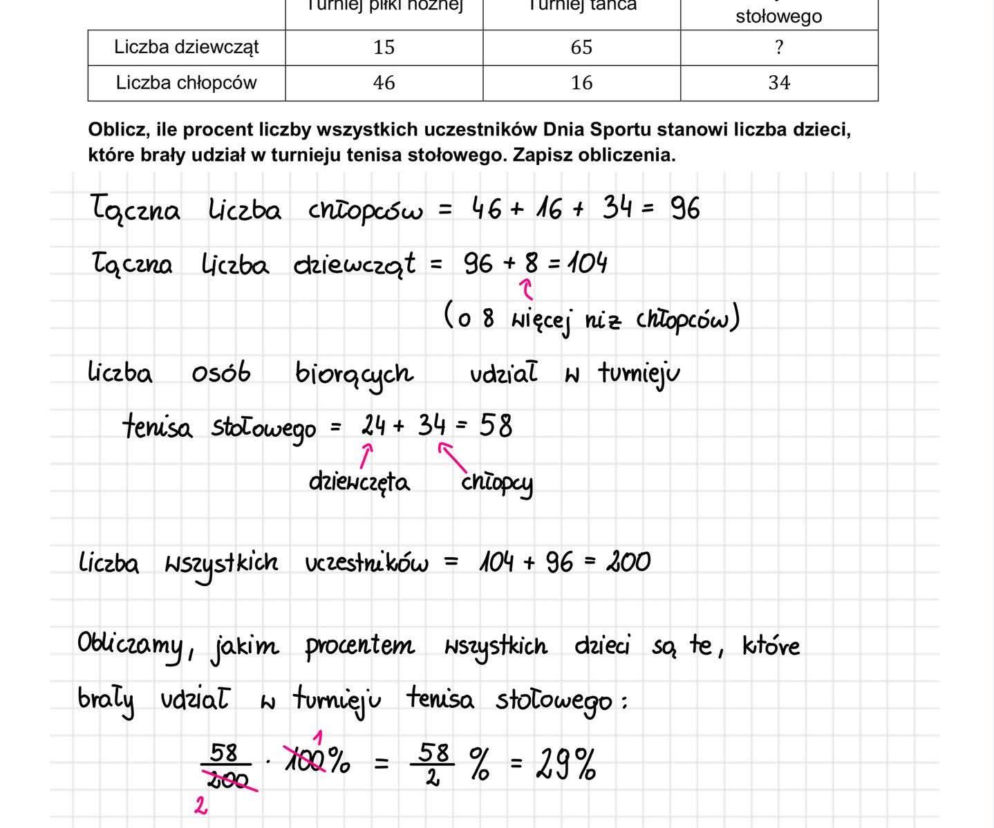 Turniej piłki nożnej Turniej tańca
stołowego
Liczba dziewcząt 15 65 ?
Liczba chłopców 46 16 34
Oblicz, ile procent liczby wszystkich uczestników Dnia Sportu stanowi liczba dzieci,
które brały udział w turnieju tenisa stołowego. Zapisz obliczenia.
Łączna liczba chłopców = 46 + 16 + 34 = 96
Łączna liczba dziewcząt = 96 + 8 = 104
(o 8 więcej niż chłopców)
liczba osób biorących udział w turnieju
tenisa stołowego = 24 + 34 = 58
dziewczęta chłopcy
liczba wszystkich uczestników = 104 + 96 = 200
Obliczamy, jakim procentem wszystkich dzieci są te, które
brały udział w turnieju tenisa stołowego :
58/200 · 100% = 58/2 % = 29%
1
2